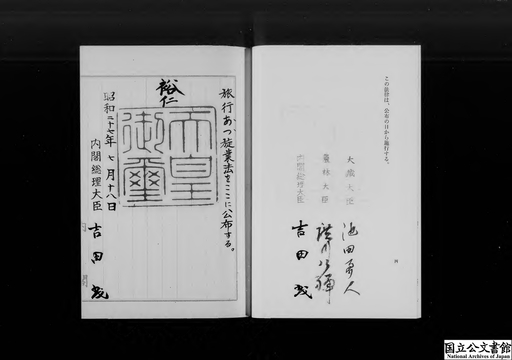 この法律は、公布の日から施行する。
大蔵大臣 池田勇人
農林大臣 廣川弘禅
内閣総理大臣 吉田茂
旅行あつ旋業法をここに公布する。
裕仁
天皇御璽
昭和二十七年七月十八日
内閣総理大臣 吉田茂
国立公文書館
National Archives of Japan